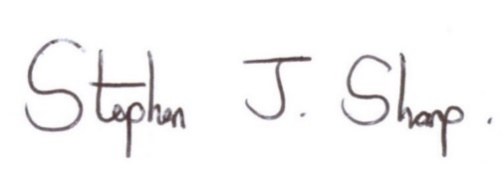 Stephen J. Sharp.